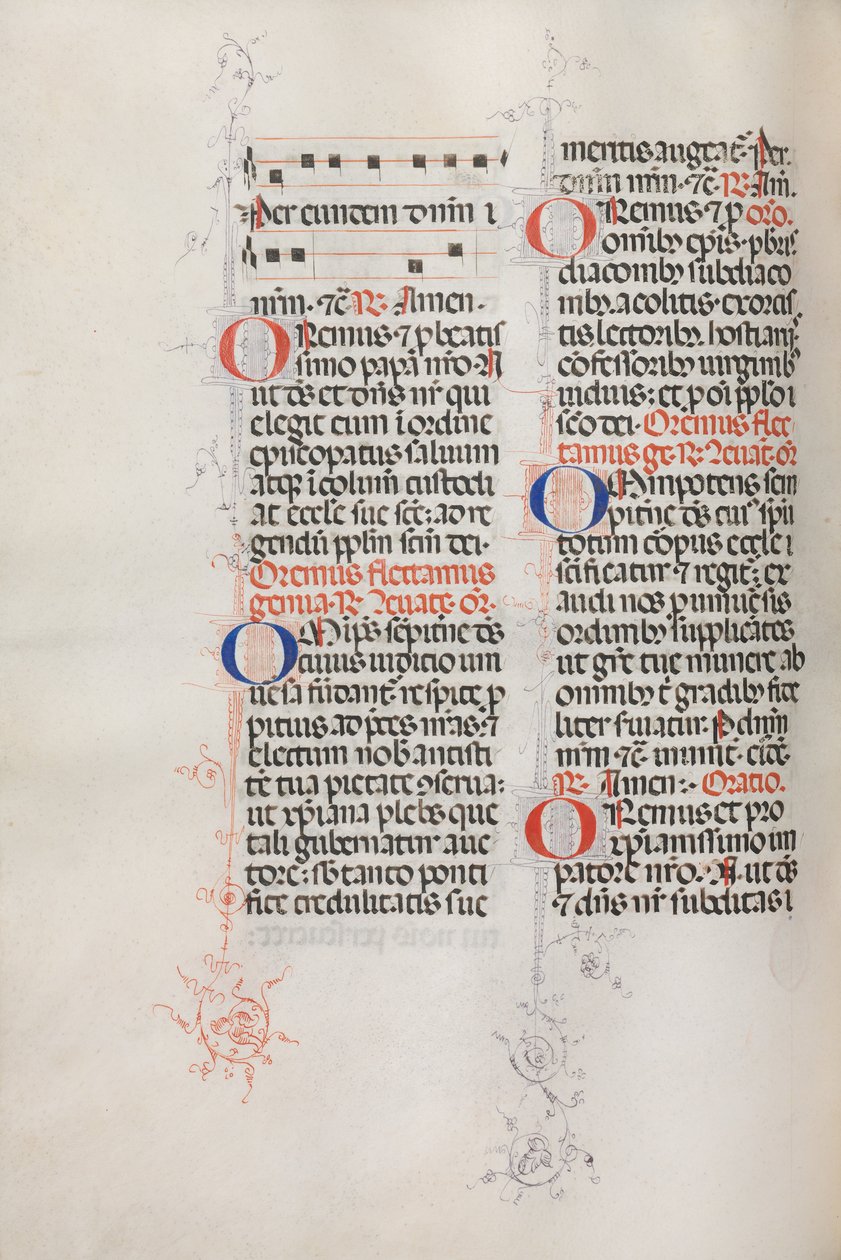 Per eundem dnm i
nrm · ⁊c̄ R̷. Amen .
Oremus · ⁊ p beatis
simo papa nr̄o · N
ut ds̄ et dn̄s nr̄ qui
elegit eum ī ordine
episcopatus saluum
atqꝫ īcolum̄ custodi
at eccl̄e sue sc̄e : ad re
gendū ppl̄m scm̄ dei ·
Oremus flectamus
genua · R̷. Leuate · or̄ .
Omīps sēpitn̄e ds̄
cuius iudicio uni
uēsa fūdant̄ · respice p
pitius ad pr̄ces nr̄as · ⁊
electum nob̄ antisti
tē tua pietate ꝯserua :
ut xp̄iana plebs que
tali gubernatur auc
tore : sb̄ tanto ponti
fice credulitatis sue
meritis augeat̄ · Per .
dnm nrm · ⁊c̄ · R̷. Am .
Oremus · ⁊ p oro .
omibꝫ ep̄is · pbr̄is
diaconibꝫ subdiaco
nibꝫ . acolitis · exorcis
tis . lectoribꝫ . hostiarijs
cōfessoribꝫ uirginibꝫ
uiduis : et p oī ppl̄o
sc̄o dei · Oremus flec
tamus ge R̷. Leuat̄ · or̄
Omnipotens sem
pitn̄e ds̄ cuī sp̄u
totum corpus eccl̄e
sc̄ificatur ⁊ regit̄ : ex
audi nos p uniuēsis
ordinibꝫ supplicātes
ut gr̄e tue munere ab
omnibꝫ t̄ gradibꝫ fide
liter seruiatur · P dnm
nrm · ⁊c̄ · in unit̄ · eius̄
R̷. Amen : · Oratio .
Oremus et pro
xp̄ianissimo im
patore nr̄o · N · ut ds̄
⁊ dn̄s nr̄ subditas i